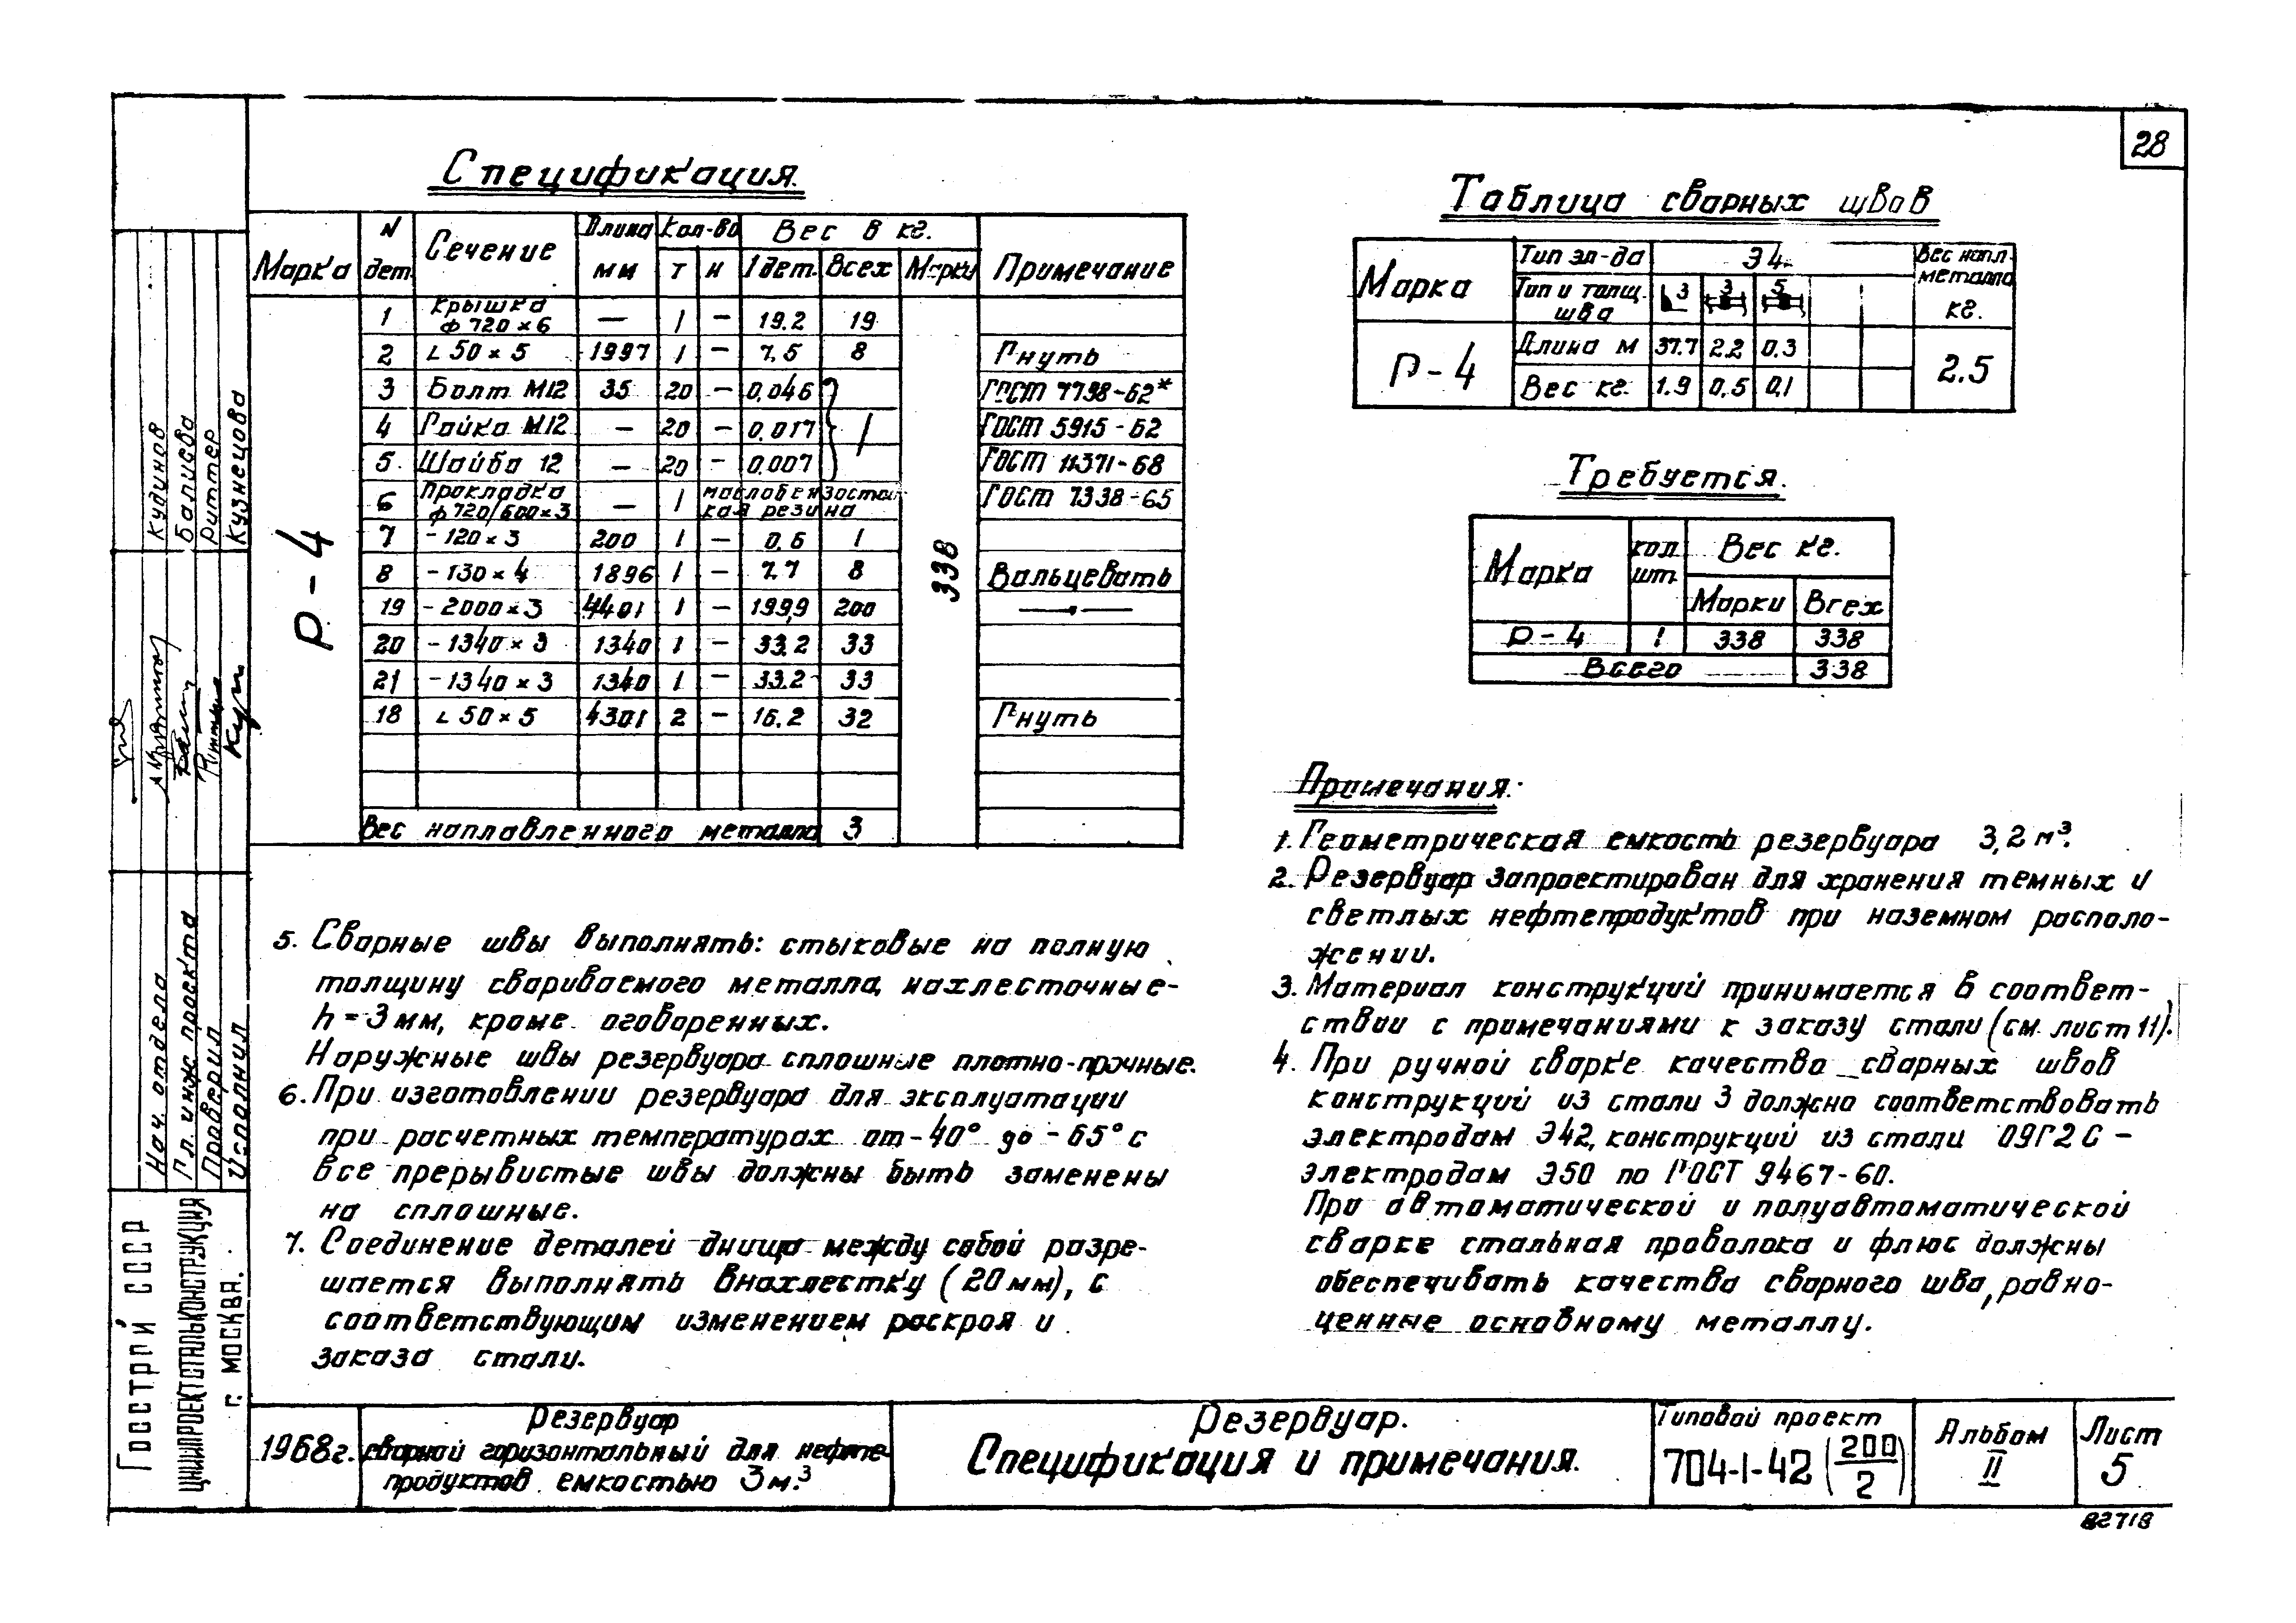 28
Спецификация.
Марка N дет. Сечение Длина мм Кол-во Вес в кг. Примечание
т н 1 дет. Всех Марки
Р-4
338
1 Крышка ф 720×6 — 1 — 19.2 19
2 L 50×5 1997 1 — 7.5 8 Гнуть
3 Болт М12 35 20 — 0.046 ГОСТ 7798-62*
4 Гайка М12 — 20 — 0.017 1 ГОСТ 5915-62
5 Шайба 12 — 20 — 0.007 ГОСТ 11371-68
6 Прокладка ф 720/600×3 — 1 маслобензостойкая резина ГОСТ 7338-65
7 - 120×3 200 1 — 0.6 1
8 - 130×4 1896 1 — 7.7 8 Вальцевать
19 - 2000×3 4401 1 — 199,9 200 —"—
20 - 1340×3 1340 1 — 33.2 33
21 - 1340×3 1340 1 — 33.2 33
18 L 50×5 4301 2 — 16.2 32 Гнуть
Вес наплавленного металла 3
Таблица сварных швов
Марка Тип эл-да Э4 Вес напл. металла кг.
Тип и толщ. шва 3 3 5
Р-4 Длина м 37.7 2.2 0.3 2.5
Вес кг. 1.9 0.5 0.1
Требуется.
Марка кол. шт. Вес кг.
Марки Всех
Р-4 1 338 338
Всего 338
Примечания:
1. Геометрическая емкость резервуара 3,2 м³.
2. Резервуар запроектирован для хранения темных и
светлых нефтепродуктов при наземном располо-
жении.
3. Материал конструкций принимается в соответ-
ствии с примечаниями к заказу стали (см. лист 11).
4. При ручной сварке качества сварных швов
конструкций из стали 3 должно соответствовать
электродам Э42, конструкций из стали 09Г2С -
электродам Э50 по ГОСТ 9467-60.
При автоматической и полуавтоматической
сварке стальная проволока и флюс должны
обеспечивать качества сварного шва, равно-
ценные основному металлу.
5. Сварные швы выполнять: стыковые на полную
толщину свариваемого металла, нахлесточные-
h = 3 мм, кроме оговоренных.
Наружные швы резервуара сплошные плотно-прочные.
6. При изготовлении резервуара для эксплуатации
при расчетных температурах от -40° до -65°с
все прерывистые швы должны быть заменены
на сплошные.
7. Соединение деталей днища между собой разре-
шается выполнять внахлестку (20 мм), с
соответствующим изменением раскроя и
заказа стали.
Нач. отдела Кудинов
Гл. инж. проекта Балиева
Проверил Риттер
Исполнил Кузнецова
Госстрой СССР
ЦНИИПРОЕКТСТАЛЬКОНСТРУКЦИЯ
г. МОСКВА.
1968г.
Резервуар
сварной горизонтальный для нефте-
продуктов емкостью 3 м.³
Резервуар.
Спецификация и примечания.
Типовой проект
704-1-42 (200/2)
Альбом
II
Лист
5